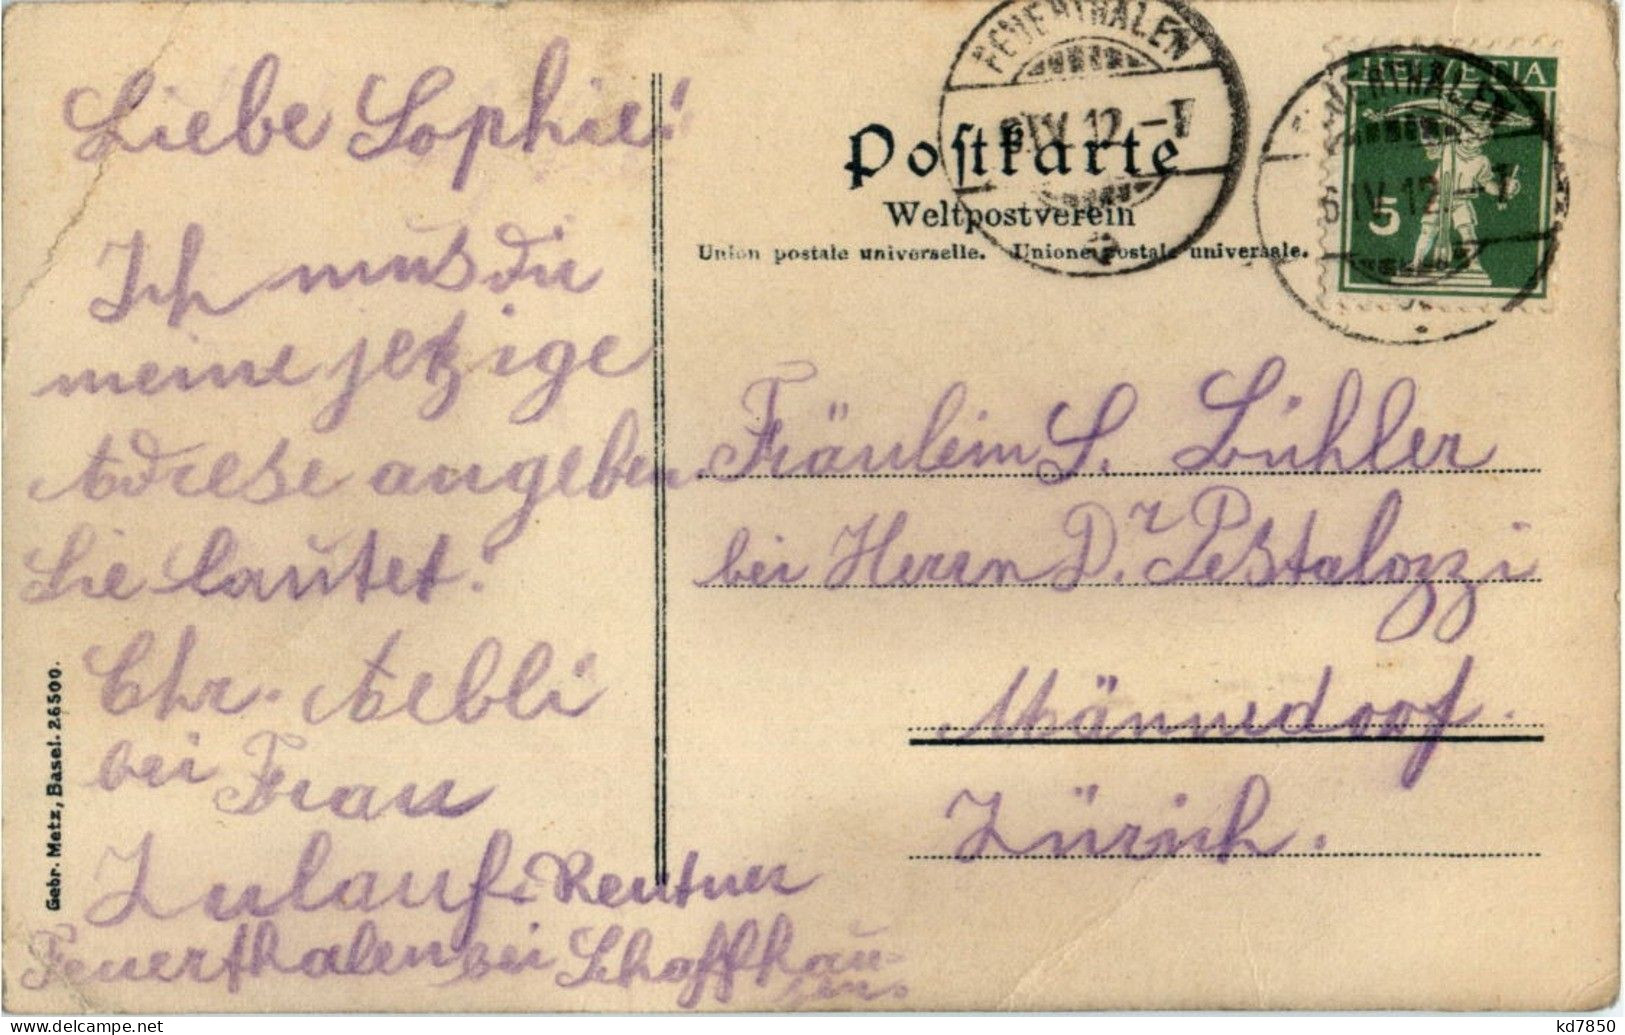 Liebe Sophie!
Ich mus dir
meine jetzige
Adrese angeben
Sie lautet:
Chr. Aebli
bei Frau
Zulauf-Rentner
Feuerthalen bei Schaffhau-
sen.
Gebr. Metz, Basel. 26500.
FEUERTHALEN
IV.12.-
Postkarte
Weltpostverein
Union postale universelle. Unione postale universale.
HELVETIA
5
IV.12.-
Fräulein S. Bühler
bei Herrn Dr. Pestalozzi
Männedorf.
Zürich.
kd7850